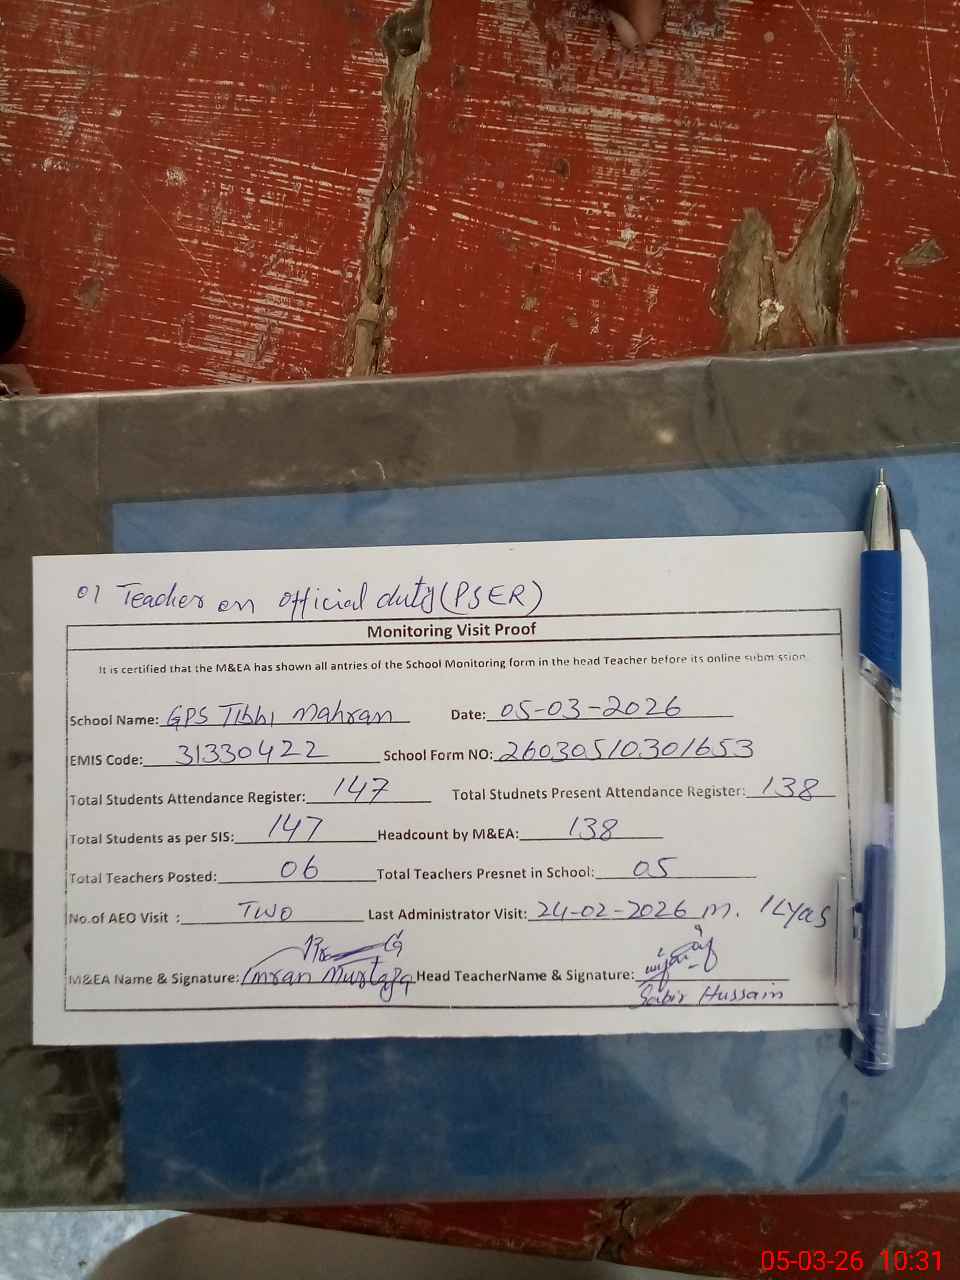 01 Teacher on official duty (PSER)
Monitoring Visit Proof
It is certified that the M&EA has shown all antries of the School Monitoring form in the head Teacher before its online submission
School Name: GPS Tibbi Mahran Date: 05-03-2026
EMIS Code: 31330422 School Form NO: 26030510301653
Total Students Attendance Register: 147 Total Studnets Present Attendance Register: 138
Total Students as per SIS: 147 Headcount by M&EA: 138
Total Teachers Posted: 06 Total Teachers Presnet in School: 05
No.of AEO Visit : TWO Last Administrator Visit: 24-02-2026 M. ILyas
M&EA Name & Signature: Imran Murtaza Head TeacherName & Signature:
Sabir Hussain
05-03-26 10:31